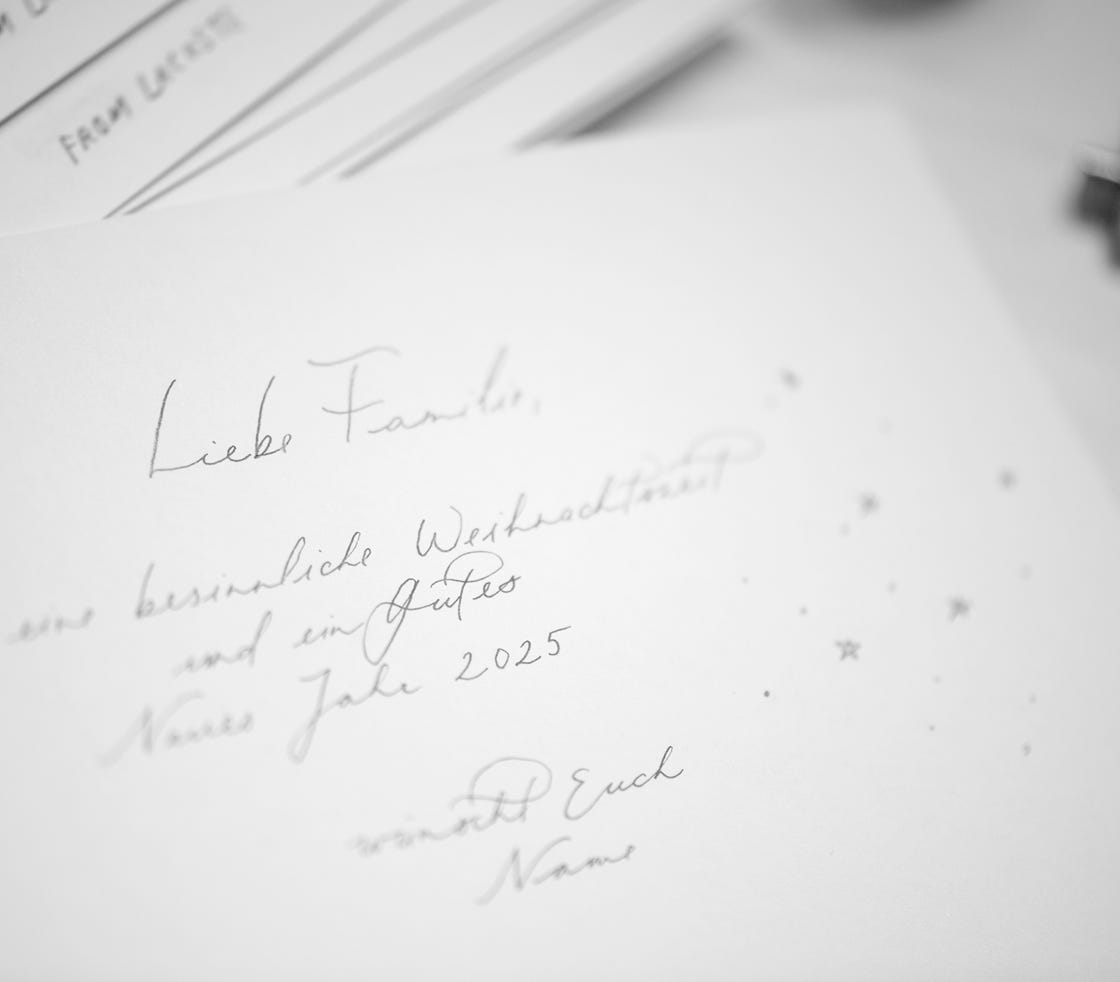 FROM LACOSTE
Liebe Familie,
eine besinnliche Weihnachtszeit
und ein gutes
Neues Jahr 2025
wünscht Euch
Name